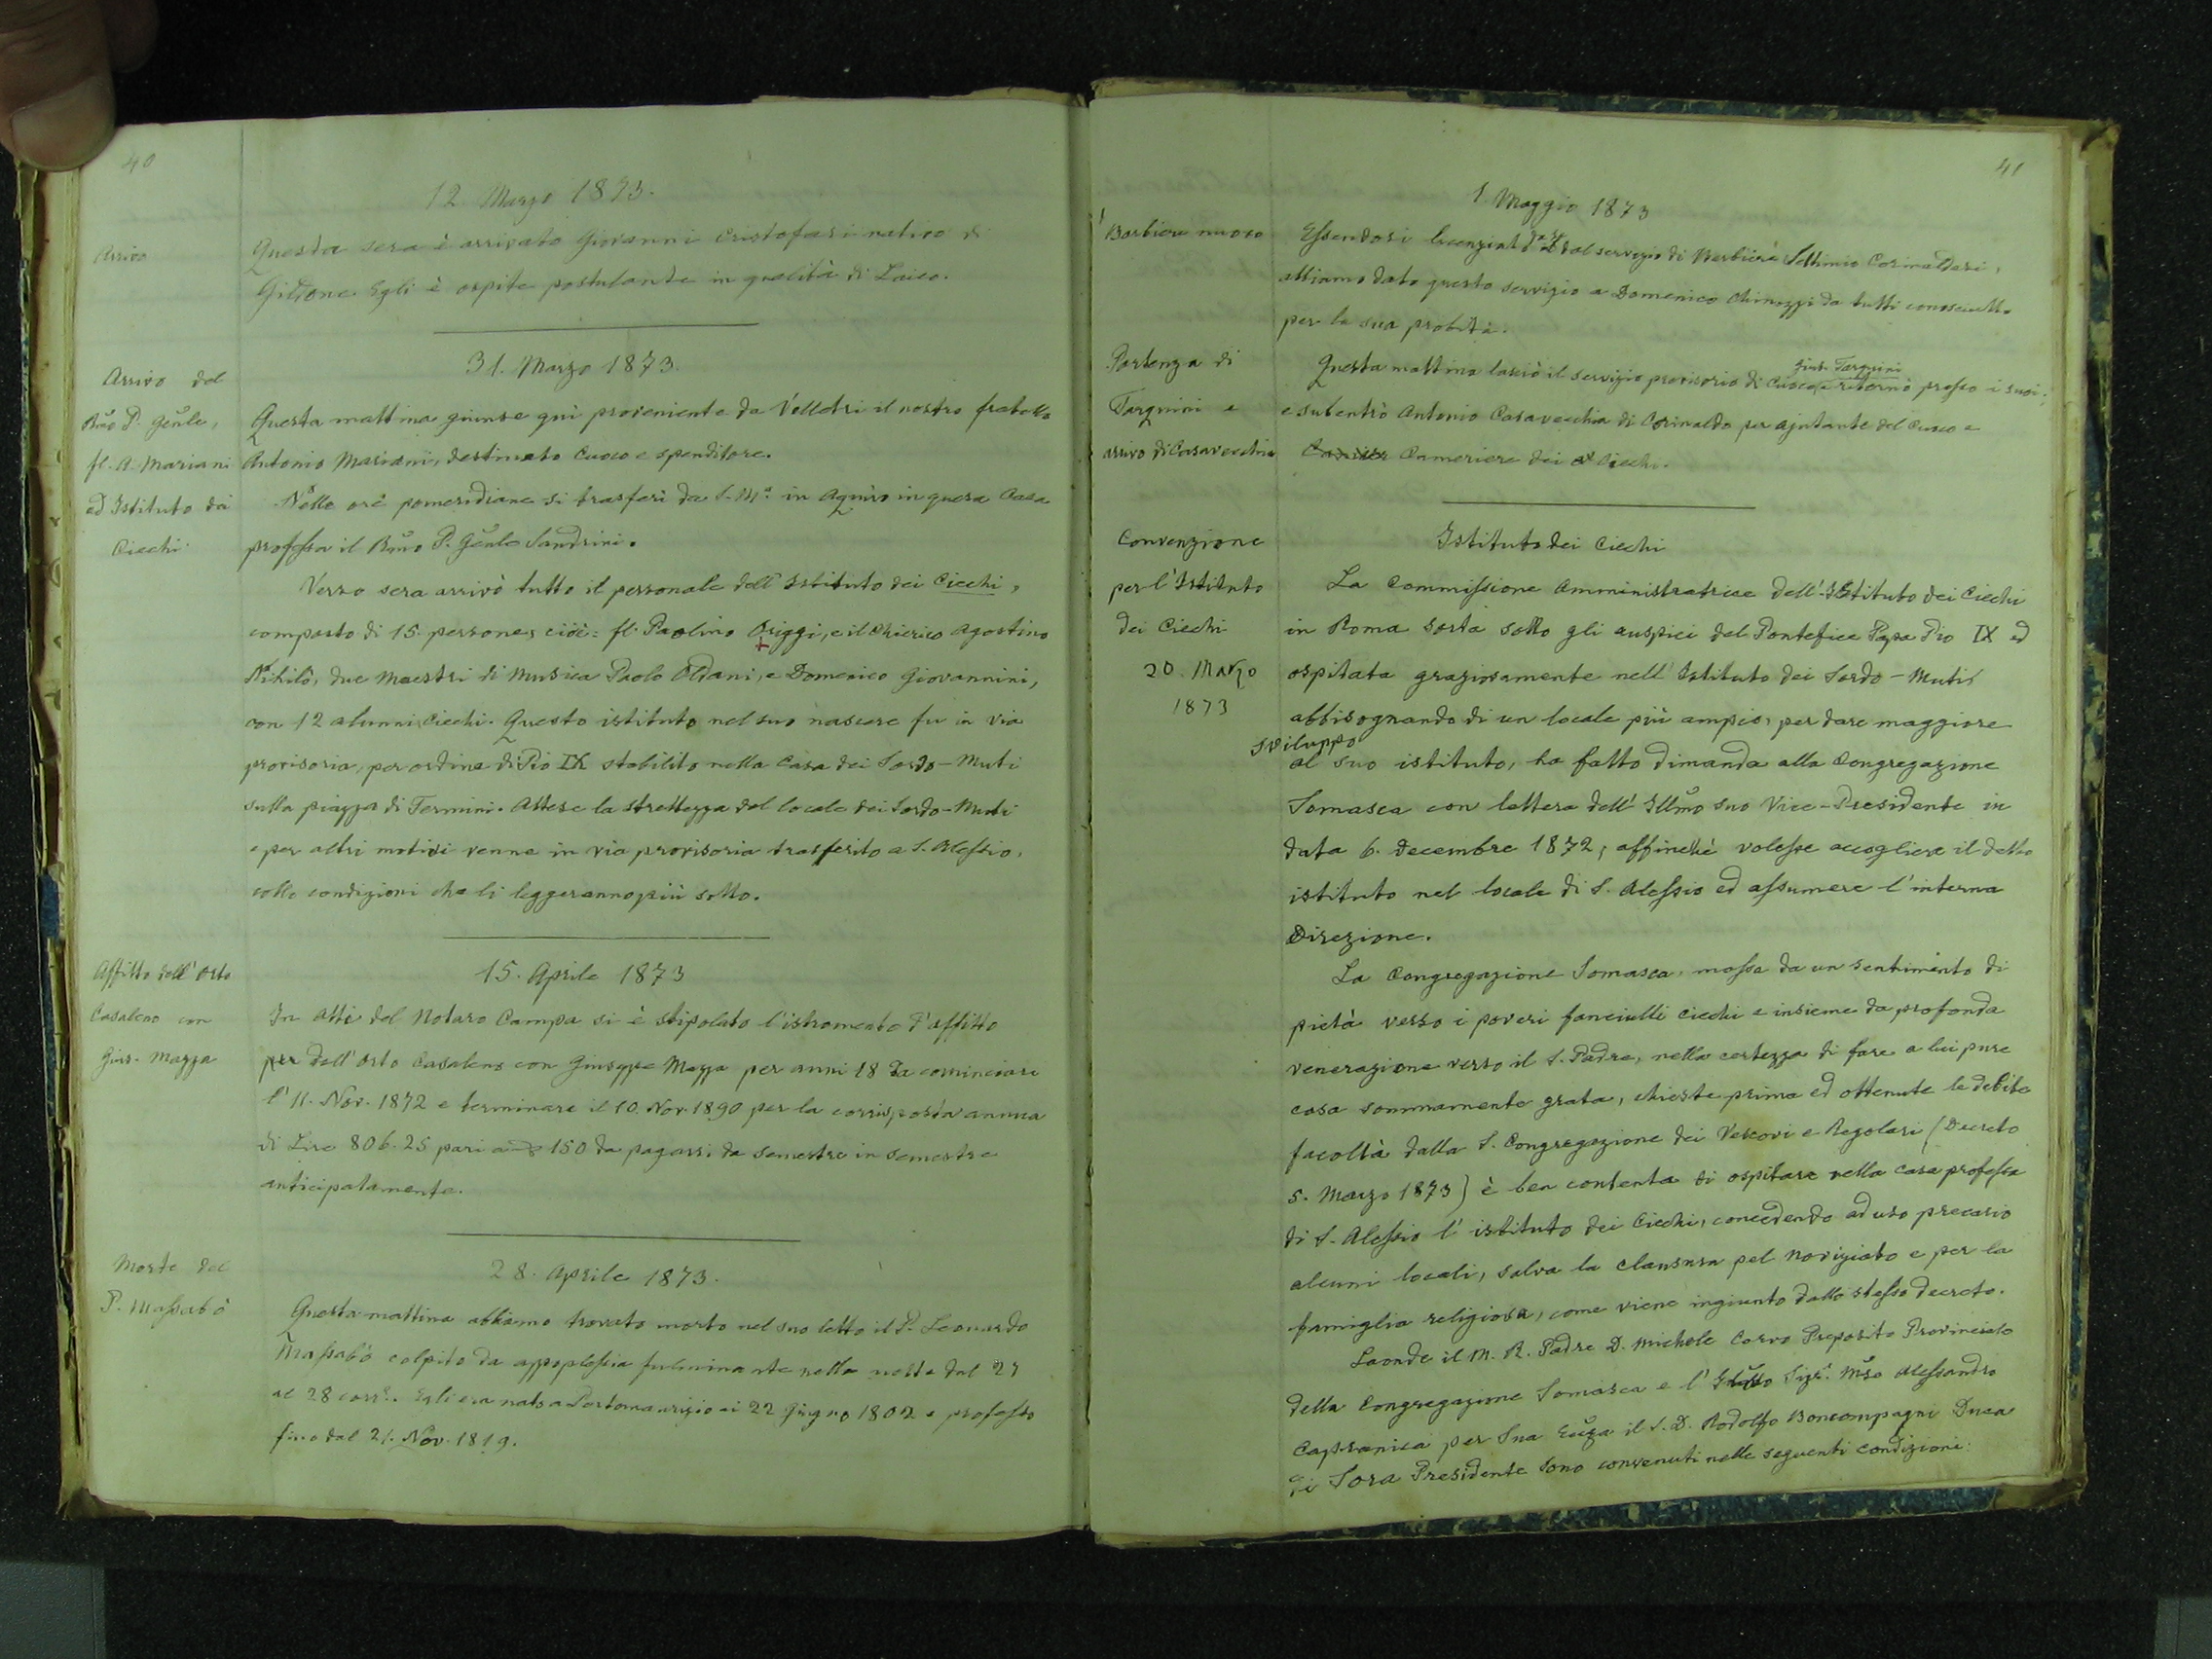 40
12. Marzo 1873.
Arrivo
Questa sera è arrivato Giovanni Cristofari nativo di
Egli è ospite postulante in qualità di Laico.
31. Marzo 1873.
Arrivo del
Rm̃o P. Gẽnle,
fl. A. Mariani
ed Istituto dei
Ciechi
Questa mattina giunse quì proveniente da Velletri il nostro fratello
Antonio Mariani, destinato Cuoco e spenditore.
Nelle ore pomeridiane si trasferì da S. Mª. in Aquiro in quesa Casa
professa il Rm̃o P. Gẽnle Sandrini.
Verso sera arrivò tutto il personale dell'Istituto dei Ciechi,
composto di 15. persone, cioè: fl. Paolino Origgi, e il Chierico Agostino
Nibilò, due Maestri di Musica Paolo Oldani, e Domenico Giovannini,
con 12 alunni Ciechi. Questo istituto nel suo nascere fu in via
provisoria, per ordine di Pio IX stabilito nella Casa dei Sordo-Muti
sulla piazza di Termini. Attese la strettezza del locale dei Sordo-Muti
e per altri motivi venne in via provisoria trasferito a S. Alessio,
colle condizioni che li leggeranno più sotto.
15. Aprile 1873
Affitto dell'Orto
Casaleno con
Gius. Mazza
In Atti del Notaro Campa si è stipolato l'istromento d'affitto
per dell'Orto Casaleno con Giuseppe Mazza per anni 18 da cominciare
l'11. Nov. 1872 e terminare il 10. Nov. 1890 per la corrisposta annua
di Lire 806.25 pari a 150 da pagarsi da semestre in semestre
anticipatamente.
28. Aprile 1873.
Morte del
P. Massabò
Questa mattina abbiamo trovato morto nel suo letto il P. Leonardo
Massabò colpito da appoplessia fulminante nella notte dal 27
al 28 corrᵉ. Egli era nato a Portomaurizio ai 22 Giugno 1802 e professo
fino dal 21. Nov. 1819.
41
1. Maggio 1873
Barbiere nuovo
Essendosi licenziat da se dal servizio di Barbiere Settimio Corinaldesi,
abbiamo dato questo servizio a Domenico Chinozzi da tutti conosciuto
per la sua probità.
Partenza di
Tarquini e
arrivo di Casavecchia
Gius. Tarquini
Questa mattina lasciò il servizio provisorio di Cuoco, e ritornò presso i suoi;
e subentrò Antonio Casavecchia di Corinaldo per ajutante del Cuoco e
Cameriere dei Ciechi.
Convenzione
per l'Istituto
dei Ciechi
20. Marzo
1873
Istituto dei Ciechi
La Commissione Amministratrice dell'Istituto dei Ciechi
in Roma sorta sotto gli auspici del Pontefice Papa Pio IX ed
ospitata graziosamente nell'Istituto dei Sordo-Muti,
abbisognando di un locale più ampio, per dare maggiore
sviluppo
al suo istituto, ha fatto dimanda alla Congregazione
Somasca con lettera dell'Illm̃o suo Vice-Presidente in
data 6. decembre 1872, affinchè volesse accogliere il detto
istituto nel locale di S. Alessio ed assumere l'interna
Direzione.
La Congregazione Somasca, mossa da un sentimento di
pietà verso i poveri fanciulli ciechi e insieme da profonda
venerazione verso il S. Padre, nella certezza di fare a lui pure
cosa sommamente grata, chieste prima ed ottenute le debite
facoltà dalla S. Congregazione dei Vescovi e Regolari (Decreto
5. Marzo 1873) è ben contenta di ospitare nella casa professa
di S. Alessio l'istituto dei Ciechi, concedendo ad uso precario
alcuni locali, salva la clausura pel noviziato e per la
famiglia religiosa, come viene ingiunto dallo stesso decreto.
Laonde il M. R. Padre D. Michele Corvo Preposito Provinciale
della Congregazione Somasca e l' Sigʳ. Mse Alessandro
Capranica per Sua Ecc̃za il S. D. Rodolfo Boncompagni Duca
di Sora Presidente sono convenuti nelle seguenti condizioni: